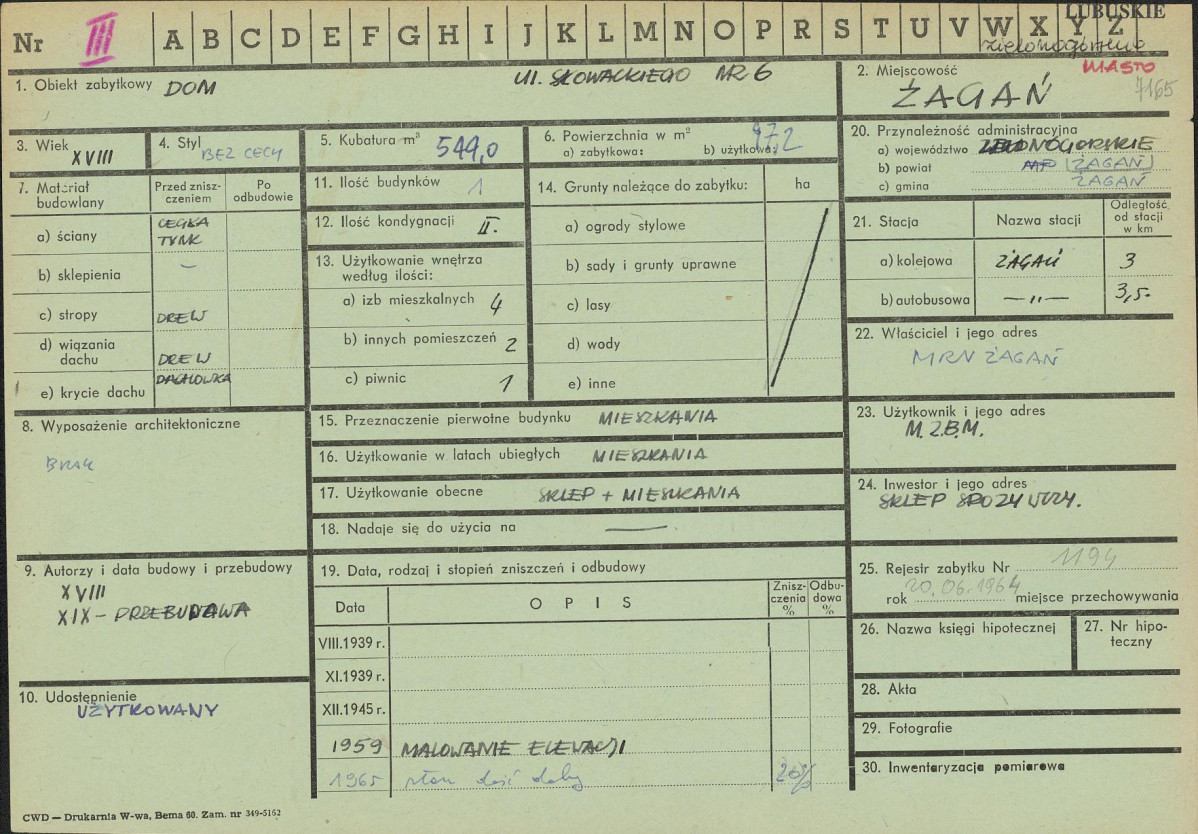 LUBUSKIE
Nr III A B C D E F G H I J K L M N O P R S T U V W X Y Z
MIASTO
7165
1. Obiekt zabytkowy DOM UL. SŁOWACKIEGO NR 6
2. Miejscowość
ŻAGAŃ
3. Wiek XVIII
4. Styl BEZ CECH
5. Kubatura m³ 549,0
6. Powierzchnia w m²
a) zabytkowa: b) użytkowa:
7. Materiał budowlany
Przed zniszczeniem
Po odbudowie
a) ściany CEGŁA
TYNK
b) sklepienia —
c) stropy DREW
d) wiązania dachu DREW
e) krycie dachu DACHÓWKA
8. Wyposażenie architektoniczne
BRAK
9. Autorzy i data budowy i przebudowy
XVIII
XIX – PRZEBUDOWA
10. Udostępnienie
UŻYTKOWANY
11. Ilość budynków 1
12. Ilość kondygnacji II.
13. Użytkowanie wnętrza
według ilości:
a) izb mieszkalnych 4
b) innych pomieszczeń 2
c) piwnic 1
14. Grunty należące do zabytku: ha
a) ogrody stylowe
b) sady i grunty uprawne
c) lasy
d) wody
e) inne
15. Przeznaczenie pierwotne budynku MIESZKANIA
16. Użytkowanie w latach ubiegłych MIESZKANIA
17. Użytkowanie obecne SKLEP + MIESZKANIA
18. Nadaje się do użycia na —
19. Data, rodzaj i stopień zniszczeń i odbudowy
Data OPIS Zniszczenia % Odbudowa %
VIII.1939 r.
XI.1939 r.
XII.1945 r.
1959 MALOWANIE ELEWACJI
1965 stan dość dobry 20%
20. Przynależność administracyjna
a) województwo ZIELONOGÓRSKIE
b) powiat (ŻAGAŃ)
c) gmina ŻAGAŃ
21. Stacja Nazwa stacji Odległość od stacji w km
a) kolejowa ŻAGAŃ 3
b) autobusowa — „ — 3,5.
22. Właściciel i jego adres
MRN ŻAGAŃ
23. Użytkownik i jego adres
M.Z.B.M.
24. Inwestor i jego adres
SKLEP SPOŻYWCZY.
25. Rejestr zabytku Nr 1194
rok 20.06.1964 miejsce przechowywania
26. Nazwa księgi hipotecznej
27. Nr hipoteczny
28. Akta
29. Fotografie
30. Inwentaryzacja pomiarowa
CWD — Drukarnia W-wa, Bema 60. Zam. nr 349-5162